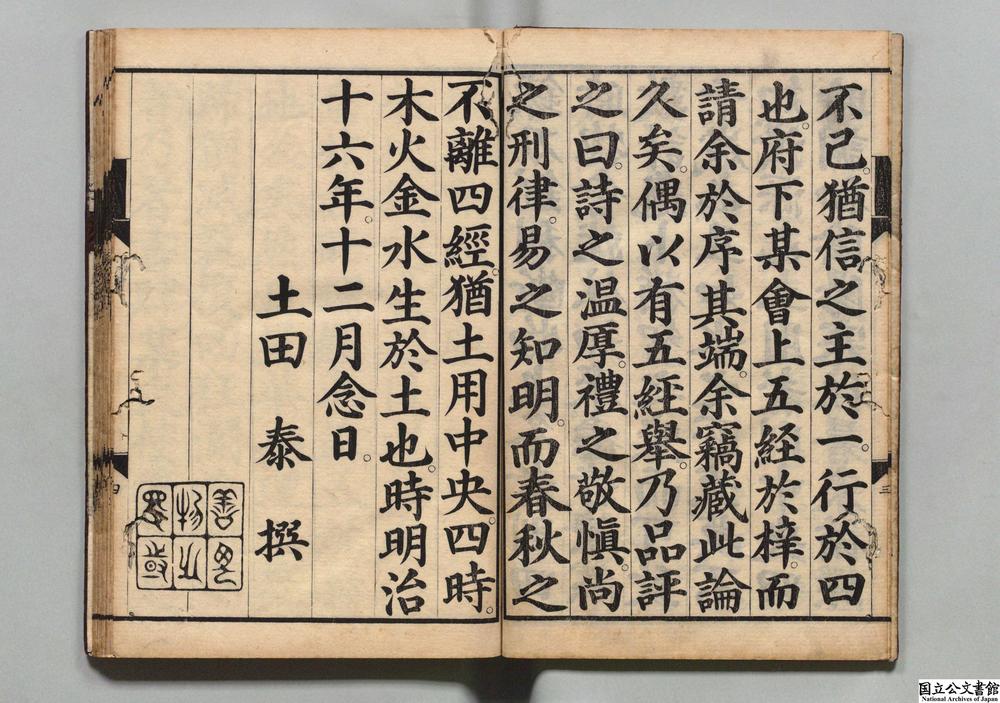 不已。猶信之主於一。行於四
也。府下某會上五経於梓。而
請余於序其端。余竊藏此論
久矣。偶以有五経舉。乃品評
之曰。詩之温厚。禮之敬愼。尚
之刑律。易之知明。而春秋之
不離四經。猶土用中央。四時。
木火金水生於土也。時明治
十六年。十二月念日。
土田 泰 撰
三
四
国立公文書館
National Archives of Japan